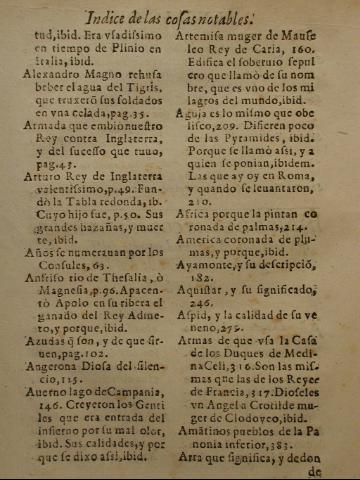 Indice de las cosas notables.
tud, ibid. Era vsadissimo
en tiempo de Plinio en
Italia, ibid.
Alexandro Magno rehusa
beber el agua del Tigris,
que truxerõ sus soldados
en vna celada, pag. 35.
Armada que embio nuestro
Rey contra Inglaterra,
y del sucesso que tuuo,
pag. 45.
Arturo Rey de Inglaterra
valentissimo, p. 49. Fun-
dò la Tabla redonda, ib.
Cuyo hijo fue, p. 50. Sus
grandes hazañas, y muer
te, ibid.
Años se numerauan por los
Consules, 63.
Anfriso rio de Thesalia, ò
Magnesia, p. 96. Apacen-
tò Apolo en su ribera el
ganado del Rey Adme-
to, y porque, ibid.
Azudas q̃ son, y de que sir-
uen, pag. 102.
Angerona Diosa del silen-
cio, 115.
Auerno lago de Campania,
146. Creyeron los Genti
les que era entrada del
infierno por su mal olor,
ibid. Sus calidades, y por
que se dixo assi, ibid.
Artemisa muger de Mause
leo Rey de Caria, 160.
Edifica el soberuio sepul
cro que llamò de su nom
bre, que es vno de los mi
lagros del mundo, ibid.
Aguja es lo mismo que obe
lisco, 209. Difieren poco
de las Pyramides, ibid.
Porque se llamò assi, y a
quien se ponian, ibidem.
Las que ay oy en Roma,
y quando se leuantaron,
210.
Africa porque la pintan co
ronada de palmas, 214.
America coronada de plu-
mas, y porque, ibid.
Ayamonte, y su descripciõ,
182.
Aquistar, y su significado,
246.
Aspid, y la calidad de su ve
neno, 275.
Armas de que vsa la Casa
de los Duques de Medi-
na Celi, 316. Son las mis-
mas que las de los Reyes
de Francia, 317. Dioseles
vn Angel a Crotilde mu-
ger de Clodoveo, ibid.
Amãtinos pueblos de la Pa
nonia inferior, 383.
Arra que significa, y de don
de